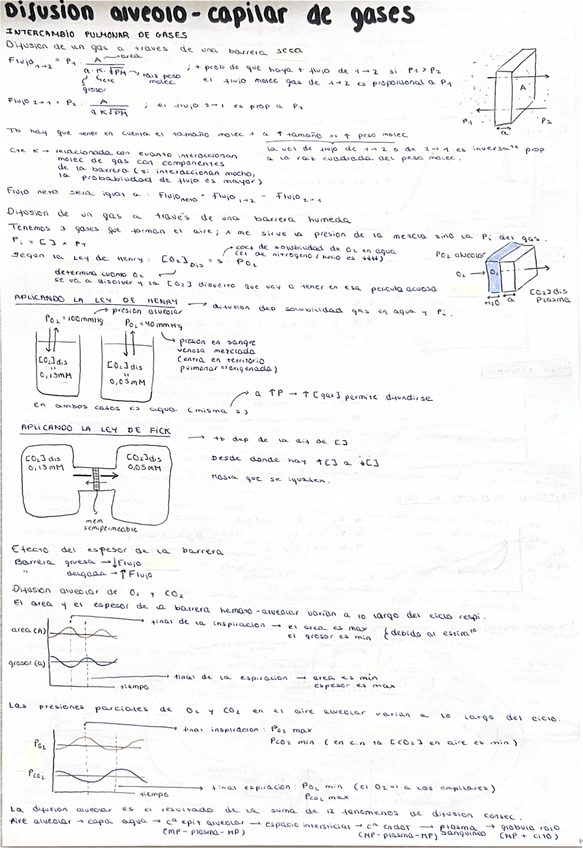 Difusion alveolo-capilar de gases
INTERCAMBIO PULMONAR DE GASES
Difusion de un gas a traves de una barrera seca
Flujo 1→2 = P1 · A / a·K·√PM → area, grosor, cte, raiz peso molec
; + prob de que haya + flujo de 1→2 si P1 > P2
el flujo molec gas de 1→2 es proporcional a P1
Flujo 2→1 = P2 · A / a K √PM ; el flujo 2→1 es prop a P2
P1 A P2 a
Tb hay que tener en cuenta el tamaño molec + a ↑ tamaño → ↑ peso molec
Cte K → relacionada con cuanto interaccionan
molec de gas con componentes
de la barrera (si interaccionan mucho,
la probabilidad de flujo es mayor)
la vel de flujo de 1→2 o de 2→1 es inversa prop
a la raiz cuadrada del peso molec.
Flujo neto sera igual a: Flujo neto = Flujo 1→2 - Flujo 2→1
Difusion de un gas a través de una barrera humeda
Tenemos 3 gases que forman el aire; no me sirve la presion de la mezcla sino la Pi del gas.
Pi = [ ] × PT
coef de solubilidad de O2 en agua
Segun la Ley de Henry: [O2]DIS = s · PO2
determina cuanto O2
se va a disolver y la [O2] disuelto que voy a tener en esa pelicula acuosa
PO2 alveolar
O2 → O2
H2O a [O2]dis plasma
APLICANDO LA LEY DE HENRY → difusion dep solubilidad gas en agua y Pi.
presion alveolar
PO2=100mmHg PO2=40mmHg
presion en sangre
venosa mezclada
(entra en territorio
pulmonar → oxigenada)
[O2]dis
0,13mM
[O2]dis
0,05mM
a ↑P → ↑[gas] permite difundirse
en ambos casos es agua (misma s)
APLICANDO LA LEY DE FICK → tb dep de la dif de [ ]
[O2]dis
0,13mM
[O2]dis
0,05mM
Desde donde hay ↑[ ] a ↓[ ]
Hasta que se igualen.
mem
semipermeable
Efecto del espesor de la barrera
Barrera gruesa → ↓Flujo
" delgada → ↑Flujo
Difusion alveolar de O2 y CO2
El area y el espesor de la barrera hemato-alveolar varian a lo largo del ciclo respi.
area (A)
final de la inspiracion → el area es max
el grosor es min
grosor (a)
final de la espiracion → area es min
espesor es max
tiempo
Las presiones parciales de O2 y CO2 en el aire alveolar varian a lo largo del ciclo.
final inspiracion: PO2 max
PCO2 min (en c.n la [CO2] en aire es min)
PO2
PCO2
final espiracion: PO2 min (el O2 → a los capilares)
PCO2 max
tiempo
La difusion alveolar es el resultado de la suma de 12 fenomenos de difusion consec.
Aire alveolar → capa agua → cª epit alveolar → espacio intersticial → cª endot → plasma sanguineo → globulo rojo
(MP-plasma-MP) (MP-plasma-MP) (MP + cito)